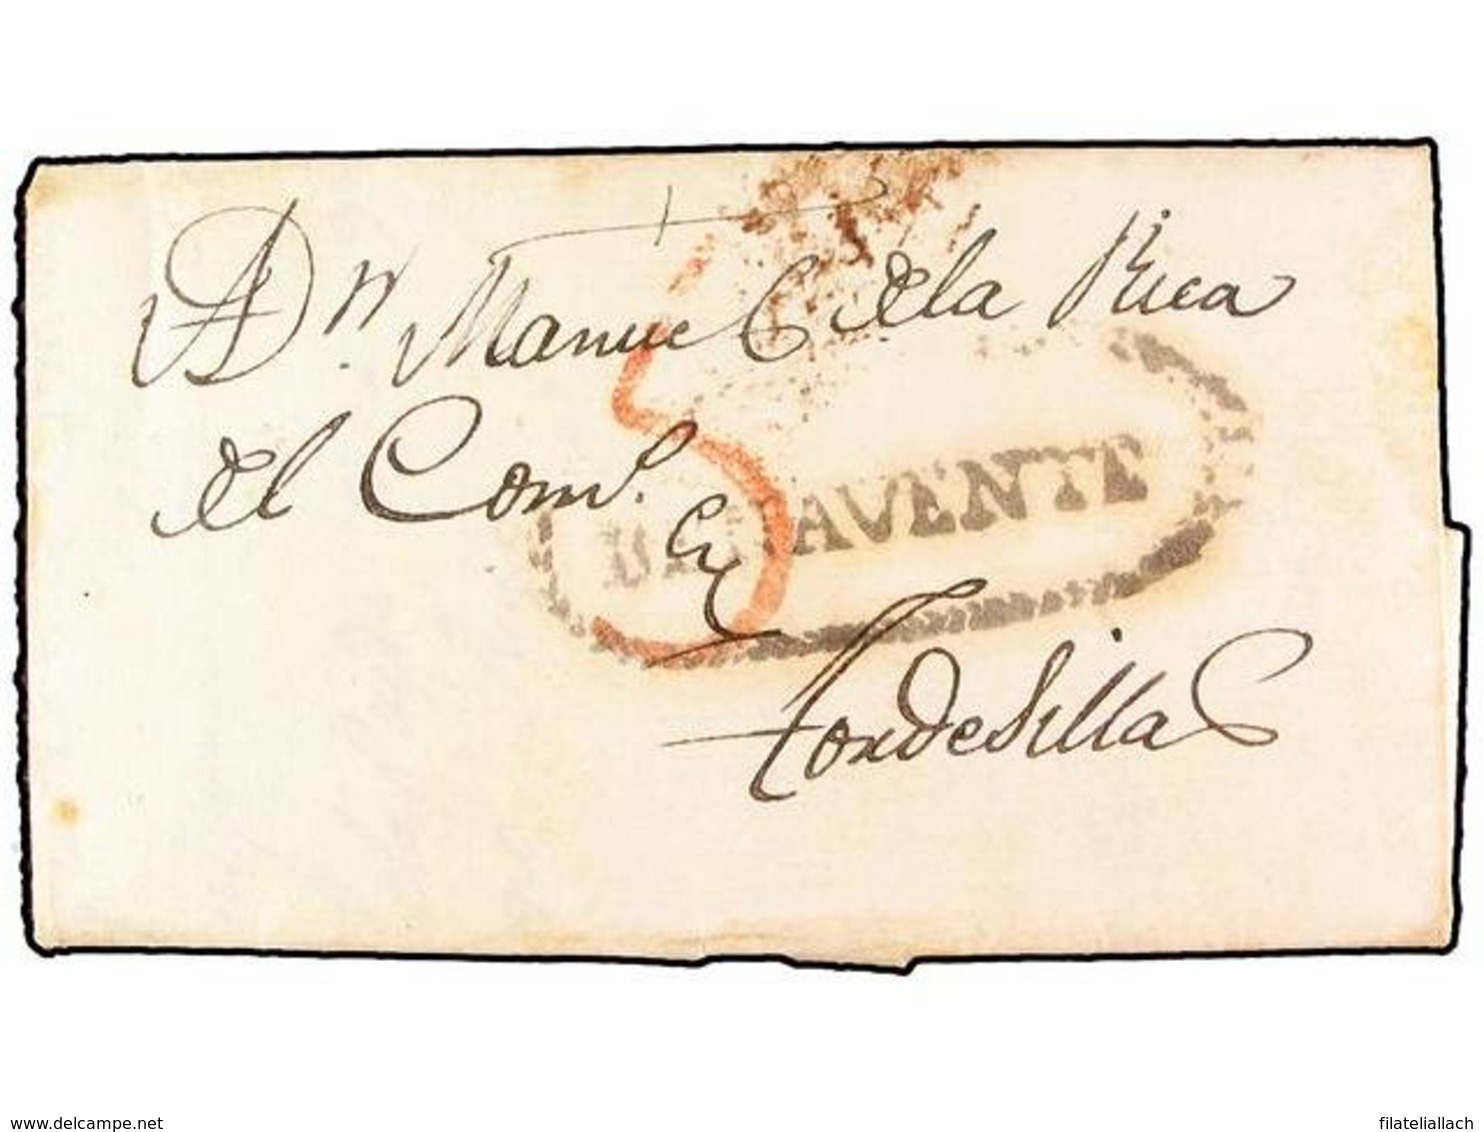 A Dn. Manuel de la Rica
del Comº.
5
BENAVENTE
En
Tordesillas
www.delcampe.net
filateliallach